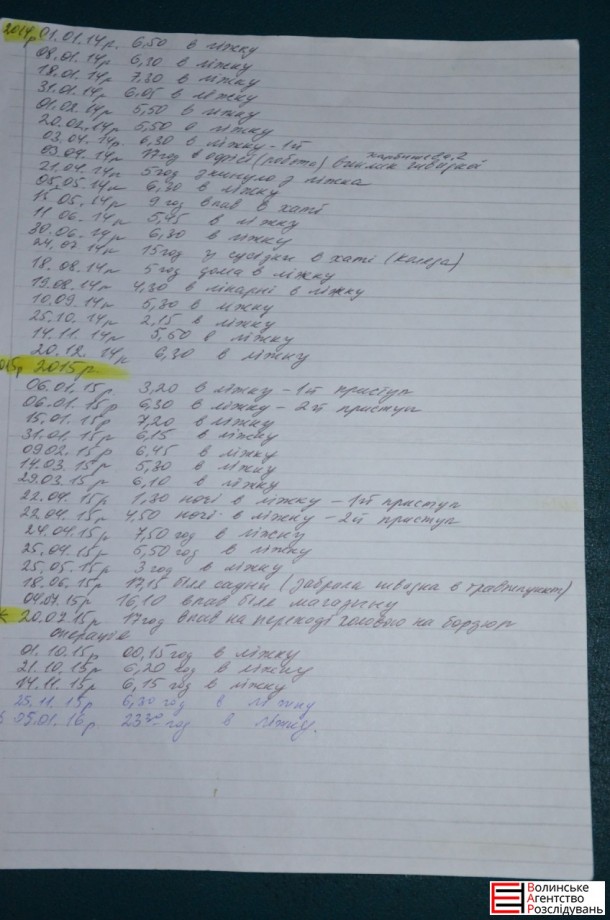 2014р
01.01.14р. 6,50 в ліжку
08.01.14р 6,30 в ліжку
18.01.14р 7,30 в ліжку
31.01.14р 6,05 в ліжку
01.02.14р 5,50 в ліжку
20.02.14р 5,50 в ліжку
03.04.14р. 0,30 в ліжку - 1й
09.04.14р 17год в (робота)
21.04.14р 5год з ліжка
05.05.14р 6,30 в ліжку
15.05.14р 9 год впав в хаті
11.06.14р 5,45 в ліжку
30.06.14р 6,30 в ліжку
24.07.14р 15год у сусідки в хаті
18.08.14р 5 год дома в ліжку
19.08.14р 4,30 в лікарні в ліжку
10.09.14р 5,30 в ліжку
25.10.14р 2,15 в ліжку
14.11.14р 5,50 в ліжку
20.12.14р 0,30 в ліжку
2015р
06.01.15р 3,20 в ліжку - 1й приступ
06.01.15р 6,30 в ліжку - 2й приступ
15.01.15р 7,20 в ліжку
31.01.15р 6,15 в ліжку
09.02.15р 6,45 в ліжку
14.03.15р 5,30 в ліжку
29.03.15р 6,10 в ліжку
22.04.15р 1,30 ночі в ліжку - 1й приступ
22.04.15р 4,50 ночі в ліжку - 2й приступ
24.04.15р 7,50 год в ліжку
25.04.15р 5,50 год в ліжку
25.05.15р 3 год в ліжку
18.06.15р 17,15 біля садіка (забрала швидка в травмпункт)
04.07.15р 16,10 впав біля магазину
* 20.07.15р 17год впав на переході головою на бордюр
операція
01.10.15р 00,15 год в ліжку
21.10.15р 6,20 год в ліжку
14.11.15р 6,15 год в ліжку
25.11.15р 6,30 год в ліжку
05.01.16р 23³⁰ год в ліжку.
Волинське
Агентство
Розслідувань